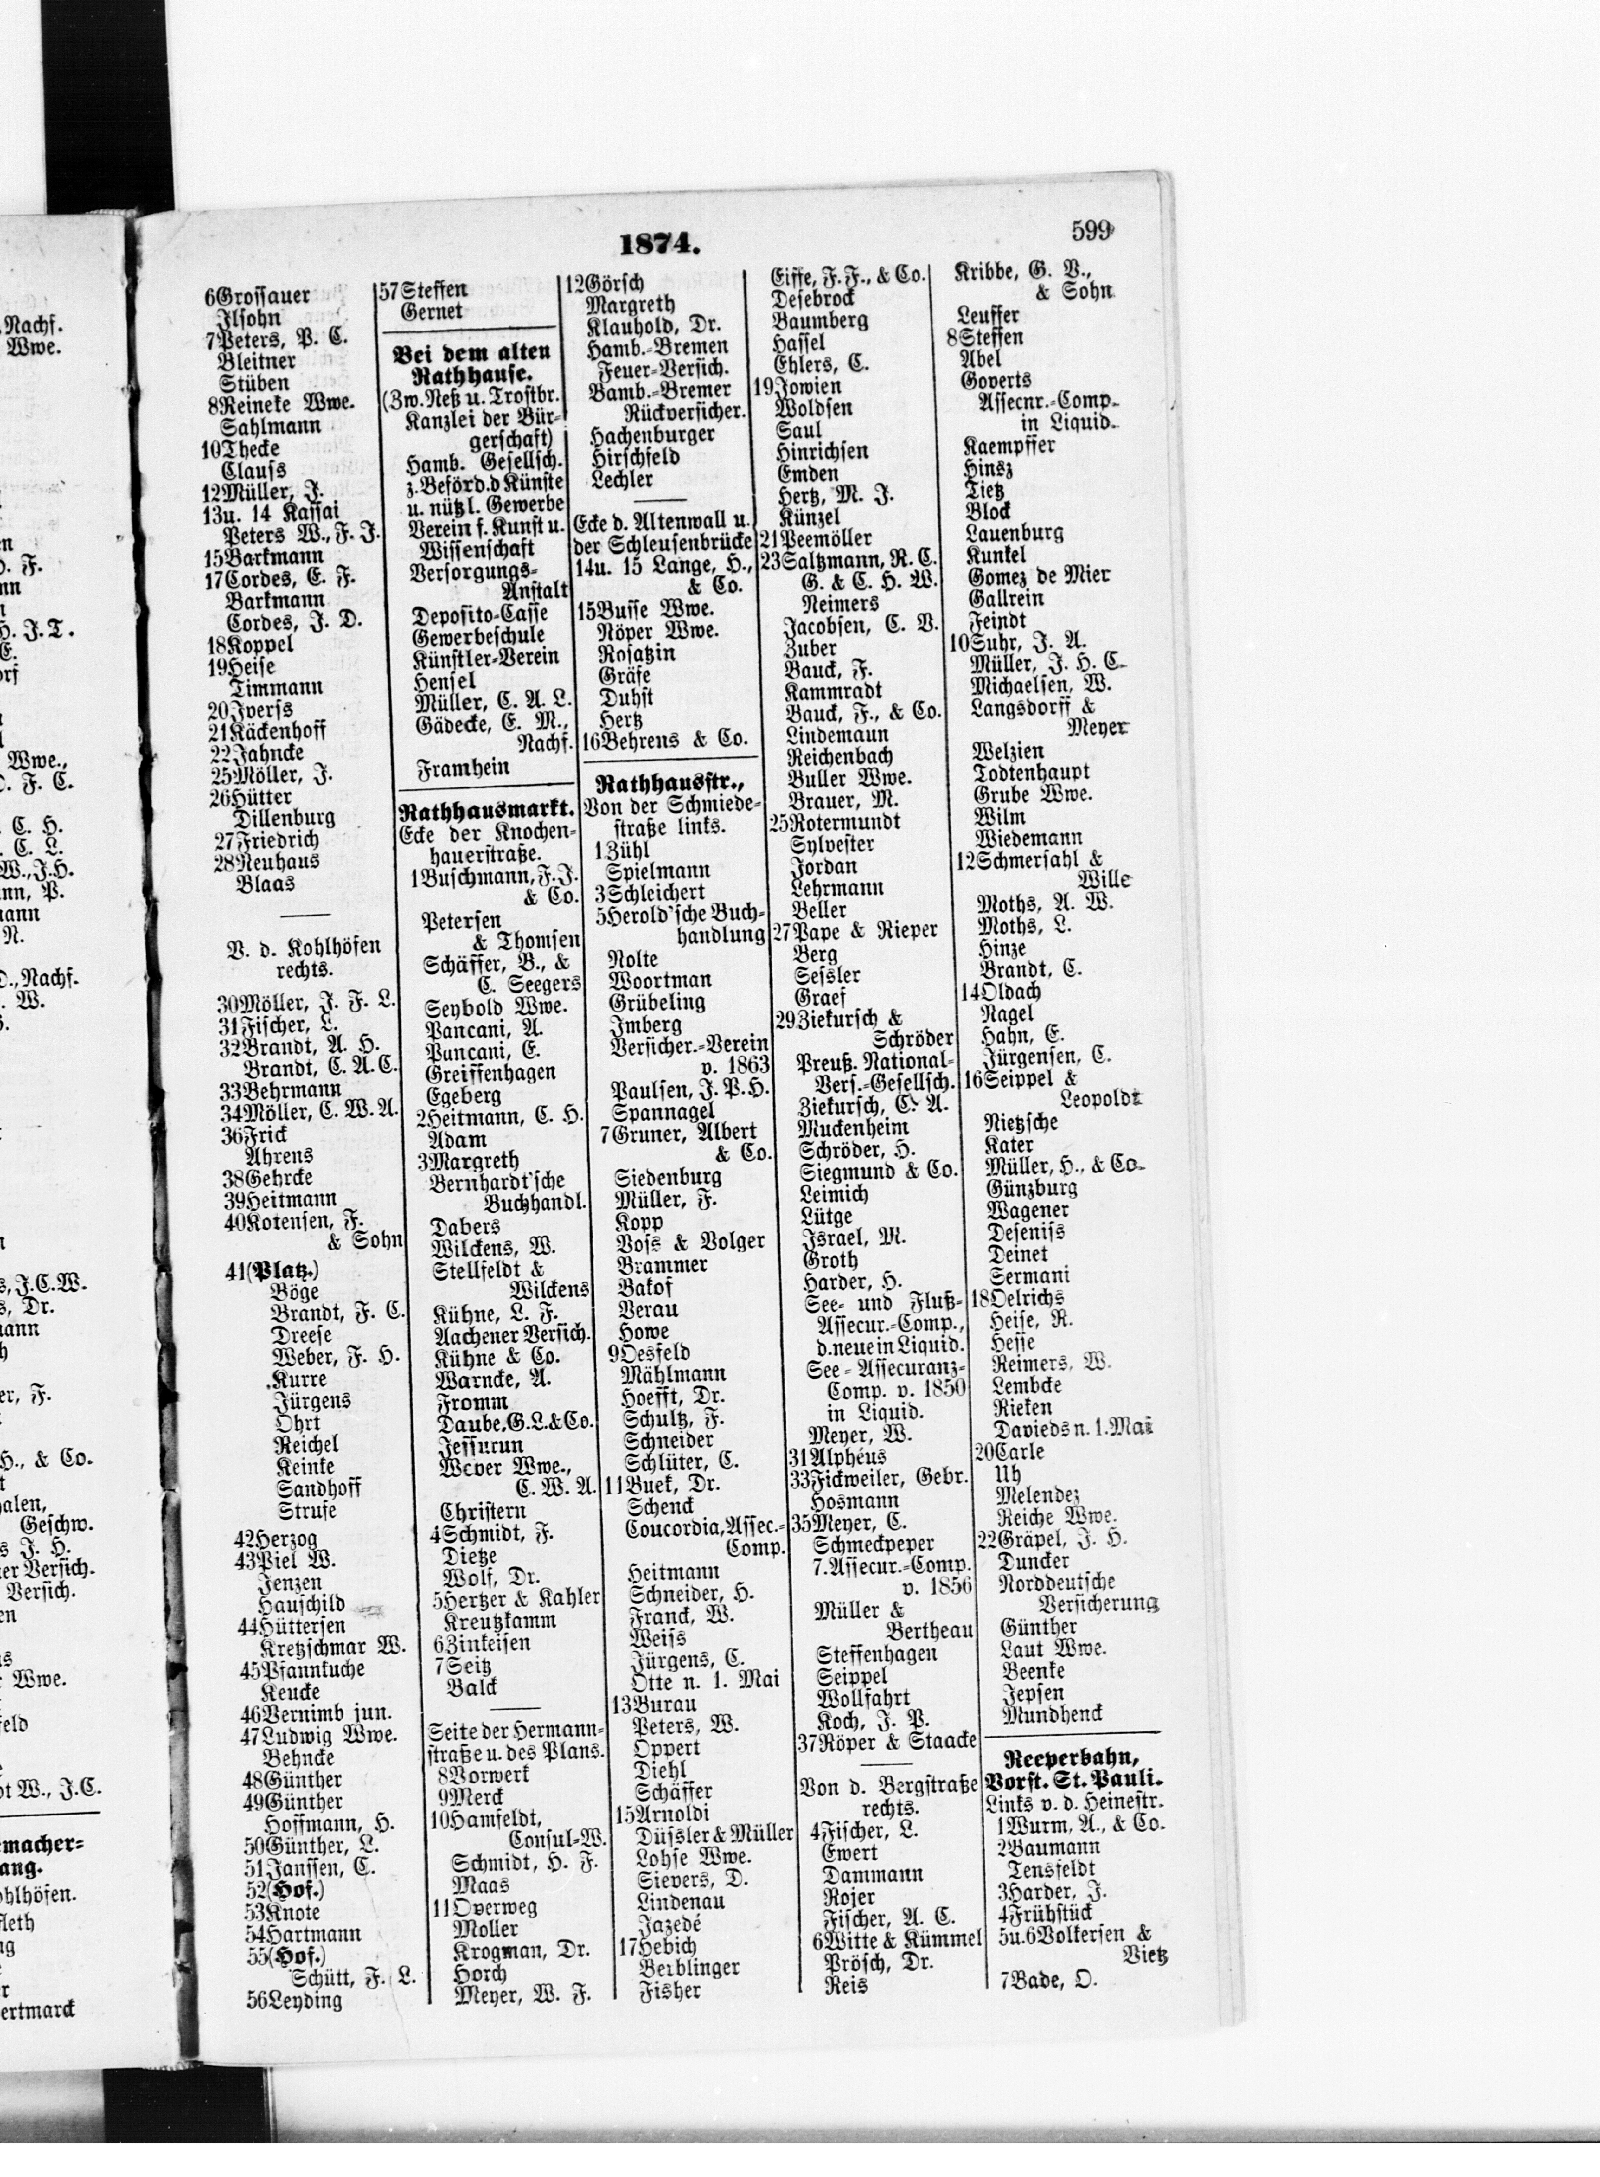 1874.
599
6Grossauer
Ilsohn
7Peters, P. C.
Bleitner
Stüben
8Reineke Wwe.
Sahlmann
10Thecke
Clauss
12Müller, J.
13u. 14 Kassai
Peters W., F. J.
15Barkmann
17Cordes, E. F.
Barkmann
Cordes, J. D.
18Koppel
19Heise
Timmann
20Iverss
21Käckenhoff
22Jahncke
25Möller, J.
26Hütter
Dillenburg
27Friedrich
28Neuhaus
Blaas
V. d. Kohlhöfen
rechts.
30Möller, J. F. L.
31Fischer, L.
32Brandt, A. H.
Brandt, C. A. C.
33Behrmann
34Möller, C. W. A.
36Frick
Ahrens
38Gehrcke
39Heitmann
40Kotensen, F.
& Sohn
41(Platz.)
Böge
Brandt, F. C.
Dreese
Weber, F. H.
Kurre
Jürgens
Ohrt
Reichel
Keinke
Sandhoff
Struse
42Herzog
43Piel W.
Jenzen
Hauschild
44Hüttersen
Kretzschmar W.
45Pfannkuche
Keucke
46Vernimb jun.
47Ludwig Wwe.
Behncke
48Günther
49Günther
Hoffmann, H.
50Günther, L.
51Janssen, C.
52(Hof.)
53Knote
54Hartmann
55(Hof.)
Schütt, F. L.
56Leyding
57Steffen
Gernet
Bei dem alten
Rathhause.
(Zw. Neß u. Trostbr.
Kanzlei der Bür-
gerschaft)
Hamb. Gesellsch.
z. Beförd. d Künste
u. nützl. Gewerbe
Verein f. Kunst u.
Wissenschaft
Versorgungs-
Anstalt
Deposito-Casse
Gewerbeschule
Künstler-Verein
Hensel
Müller, C. A. L.
Gädecke, E. M.,
Nachf.
Framhein
Rathhausmarkt.
Ecke der Knochen-
hauerstraße.
1Buschmann, F. J.
& Co.
Petersen
& Thomsen
Schäffer, B., &
C. Seegers
Seybold Wwe.
Pancani, A.
Pancani, E.
Greiffenhagen
Egeberg
2Heitmann, C. H.
Adam
3Margreth
Bernhardt'sche
Buchhandl.
Dabers
Wilckens, W.
Stellfeldt &
Wilckens
Kühne, L. F.
Aachener Versich.
Kühne & Co.
Warncke, A.
Fromm
Daube, G. L. & Co.
Jessurun
Wever Wwe.,
C. W. A.
Christern
4Schmidt, F.
Dietze
Wolf, Dr.
5Hertzer & Kahler
Kreutzkamm
6Zinkeisen
7Seitz
Balck
Seite der Hermann-
straße u. des Plans.
8Vorwerk
9Merck
10Hamfeldt,
Consul-W.
Schmidt, H. F.
Maas
11Overweg
Moller
Krogman, Dr.
Horch
Meyer, W. F.
12Görsch
Margreth
Klauhold, Dr.
Hamb.-Bremen
Feuer-Versich.
Bamb.-Bremer
Rückversicher.
Hachenburger
Hirschfeld
Lechler
Ecke d. Altenwall u.
der Schleusenbrücke
14u. 15 Lange, H.,
& Co.
15Busse Wwe.
Nöper Wwe.
Rosatzin
Gräfe
Duhst
Hertz
16Behrens & Co.
Rathhausstr.,
Von der Schmiede-
straße links.
1Zühl
Spielmann
3Schleichert
5Herold'sche Buch-
handlung
Nolte
Woortman
Grübeling
Imberg
Versicher.-Verein
v. 1863
Paulsen, J. P. H.
Spannagel
7Gruner, Albert
& Co.
Siedenburg
Müller, F.
Kopp
Voss & Volger
Brammer
Bakof
Verau
Howe
9Oesfeld
Mählmann
Hoefft, Dr.
Schultz, F.
Schneider
Schlüter, C.
11Buek, Dr.
Schenck
Coucordia, Assec.-
Comp.
Heitmann
Schneider, H.
Franck, W.
Weiss
Jürgens, C.
Otte n. 1. Mai
13Burau
Peters, W.
Oppert
Diehl
Schäffer
15Arnoldi
Düssler & Müller
Lohse Wwe.
Sievers, D.
Lindenau
Jazedé
17Hebich
Beiblinger
Fisher
Eiffe, F. F., & Co.
Desebrock
Baumberg
Hassel
Ehlers, C.
19Jowien
Woldsen
Saul
Hinrichsen
Emden
Hertz, M. J.
Künzel
21Peemöller
23Saltzmann, R. C.
G. & C. H. W.
Reimers
Jacobsen, C. V.
Zuber
Bauck, F.
Kammradt
Bauck, F., & Co.
Lindemaun
Reichenbach
Buller Wwe.
Brauer, M.
25Rotermundt
Sylvester
Jordan
Lehrmann
Beller
27Pape & Rieper
Berg
Sessler
Graef
29Ziekursch &
Schröder
Preuß. National-
Vers.-Gesellsch.
Ziekursch, C. A.
Muckenheim
Schröder, H.
Siegmund & Co.
Leimich
Lütge
Israel, M.
Groth
Harder, H.
See- und Fluß-
Assecur.-Comp.,
d. neue in Liquid.
See-Assecuranz-
Comp. v. 1850
in Liquid.
Meyer, W.
31Alphéus
33Fickweiler, Gebr.
Hosmann
35Meyer, C.
Schmeckpeper
7. Assecur.-Comp.
v. 1856
Müller &
Bertheau
Steffenhagen
Seippel
Wollfahrt
Koch, J. P.
37Röper & Staacke
Von d. Bergstraße
rechts.
4Fischer, L.
Ewert
Dammann
Rojer
Fischer, A. C.
6Witte & Kümmel
Prösch, Dr.
Reis
Kribbe, G. V.,
& Sohn
Leuffer
8Steffen
Abel
Goverts
Assecnr.-Comp.
in Liquid.
Kaempffer
Hinsz
Tietz
Block
Lauenburg
Kunkel
Gomez de Mier
Gallrein
Feindt
10Suhr, J. A.
Müller, J. H. C.
Michaelsen, W.
Langsdorff &
Meyer
Welzien
Todtenhaupt
Grube Wwe.
Wilm
Wiedemann
12Schmersahl &
Wille
Moths, A. W.
Moths, L.
Hinze
Brandt, C.
14Oldach
Nagel
Hahn, E.
Jürgensen, C.
16Seippel &
Leopoldt
Nietzsche
Kater
Müller, H., & Co.
Günzburg
Wagener
Deseniss
Deinet
Sermani
18Oelrichs
Heise, R.
Hesse
Reimers, W.
Lembcke
Rieken
Davieds n. 1. Mai
20Carle
Uh
Melendez
Reiche Wwe.
22Gräpel, J. H.
Duncker
Norddeutsche
Versicherung
Günther
Laut Wwe.
Beenke
Jepsen
Mundhenck
Reeperbahn,
Vorst. St. Pauli.
Links v. d. Heinestr.
1Wurm, A., & Co.
2Baumann
Tensfeldt
3Harder, J.
4Frühstück
5u.6Volkersen &
Vietz
7Bade, O.